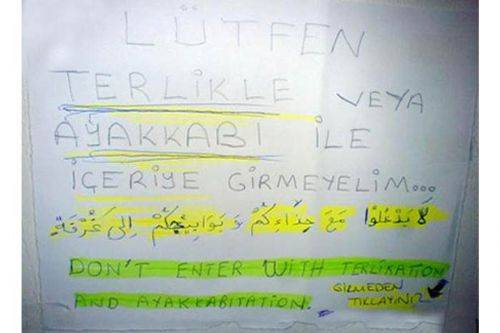 LÜTFEN
TERLİKLE VEYA
AYAKKABI İLE
İÇERİYE GİRMEYELİM...
لا يدخلوا مع حذاءكم و بوابيجكم إلى غرفة
DON'T ENTER WITH TERLIKATION
AND AYAKKABITATION.
GİRMEDEN
TIKLAYINIZ